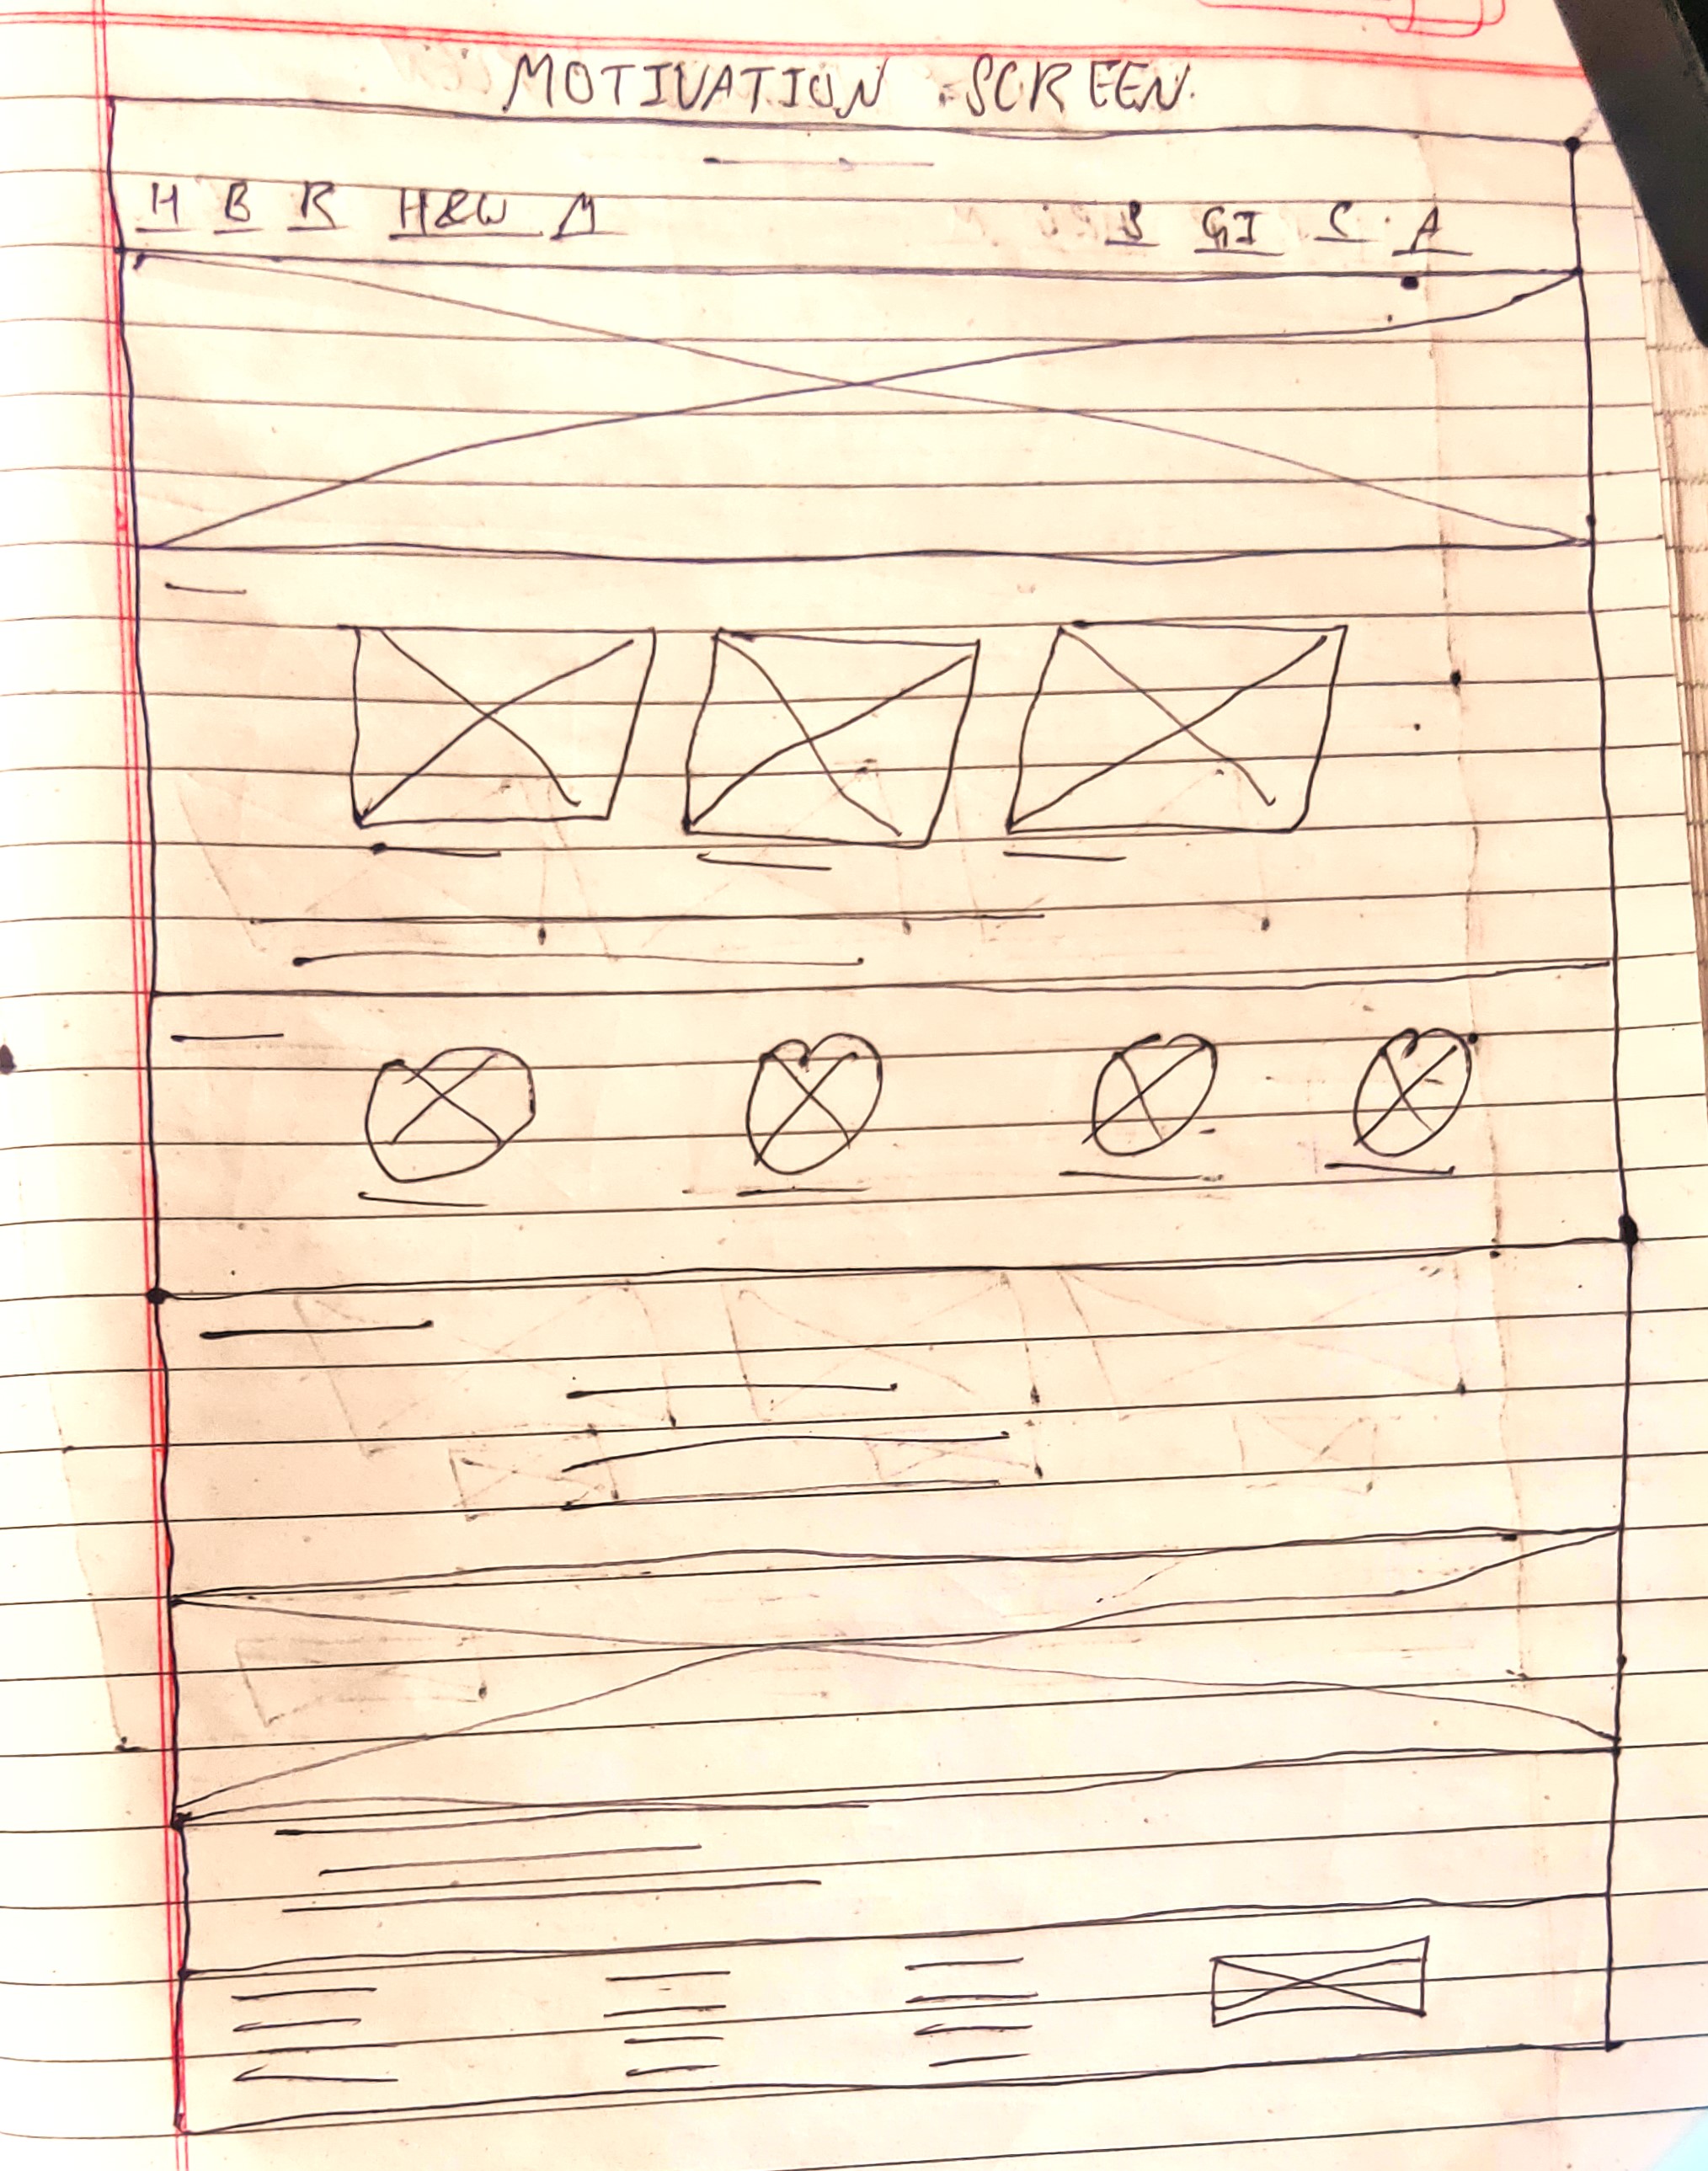 MOTIVATION SCREEN
H B R H&W M S GI C A